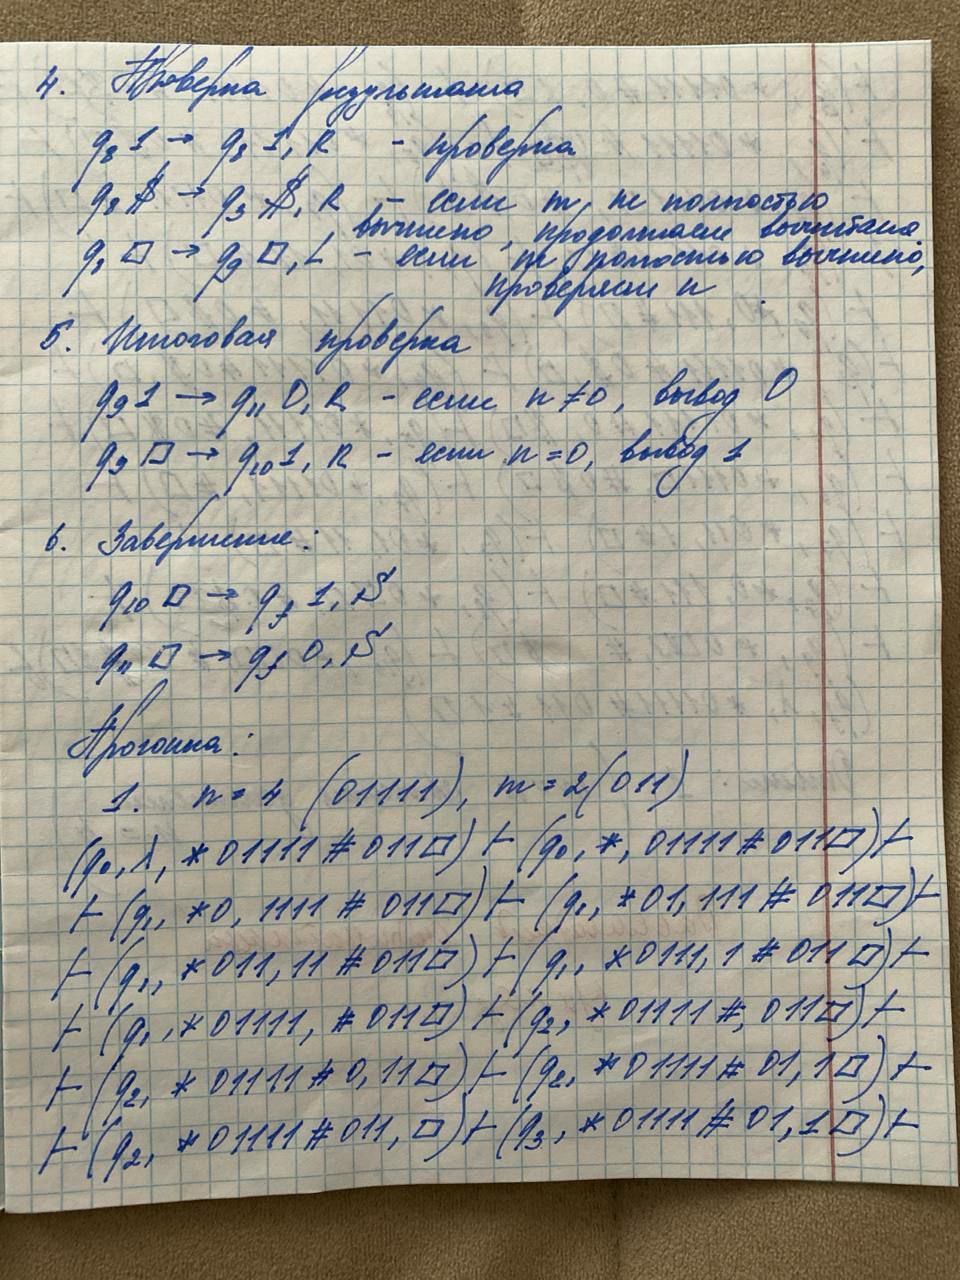 4. Проверка результата
q₈ 1 → q₈ 1, R - проверка
q₈ $ → q₃ $, R - если m не полностью
вычтено, продолжаем вычитание
q₈ □ → q₉ □, L - если m полностью вычтено,
проверяем n
5. Итоговая проверка
q₉ 1 → q₁₁ 0, R - если n ≠ 0, вывод 0
q₉ □ → q₁₀ 1, R - если n = 0, вывод 1
6. Завершение:
q₁₀ □ → q_f 1, S
q₁₁ □ → q_f 0, S
Прогонка:
1. n = 4 (01111), m = 2 (011)
(q₀, λ, *01111#011□) ⊢ (q₀, *, 01111#011□) ⊢
⊢ (q₁, *0, 1111#011□) ⊢ (q₁, *01, 111#011□) ⊢
⊢ (q₁, *011, 11#011□) ⊢ (q₁, *0111, 1#011□) ⊢
⊢ (q₁, *01111, #011□) ⊢ (q₂, *01111#, 011□) ⊢
⊢ (q₂, *01111#0, 11□) ⊢ (q₂, *01111#01, 1□) ⊢
⊢ (q₂, *01111#011, □) ⊢ (q₃, *01111#01, 1□) ⊢